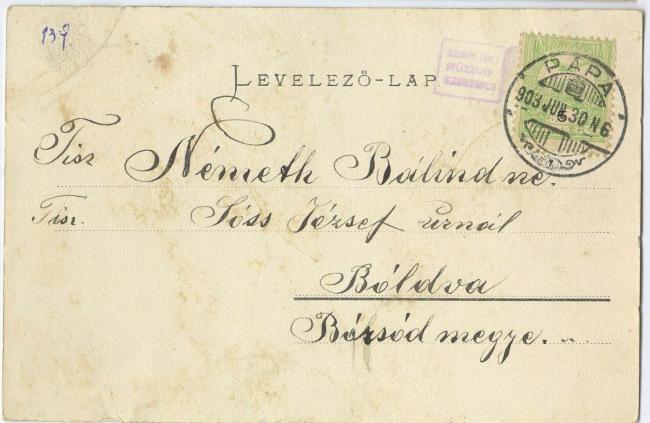 137.
LEVELEZŐ-LAP
ZEMPLÉNI
MÚZEUM
SZERENCS
PÁPA
903 JUN. 30 N6
Tisz Németh Bálindné.
Tisz. Sóss József úrnál
Bóldva
Bórsód megye.